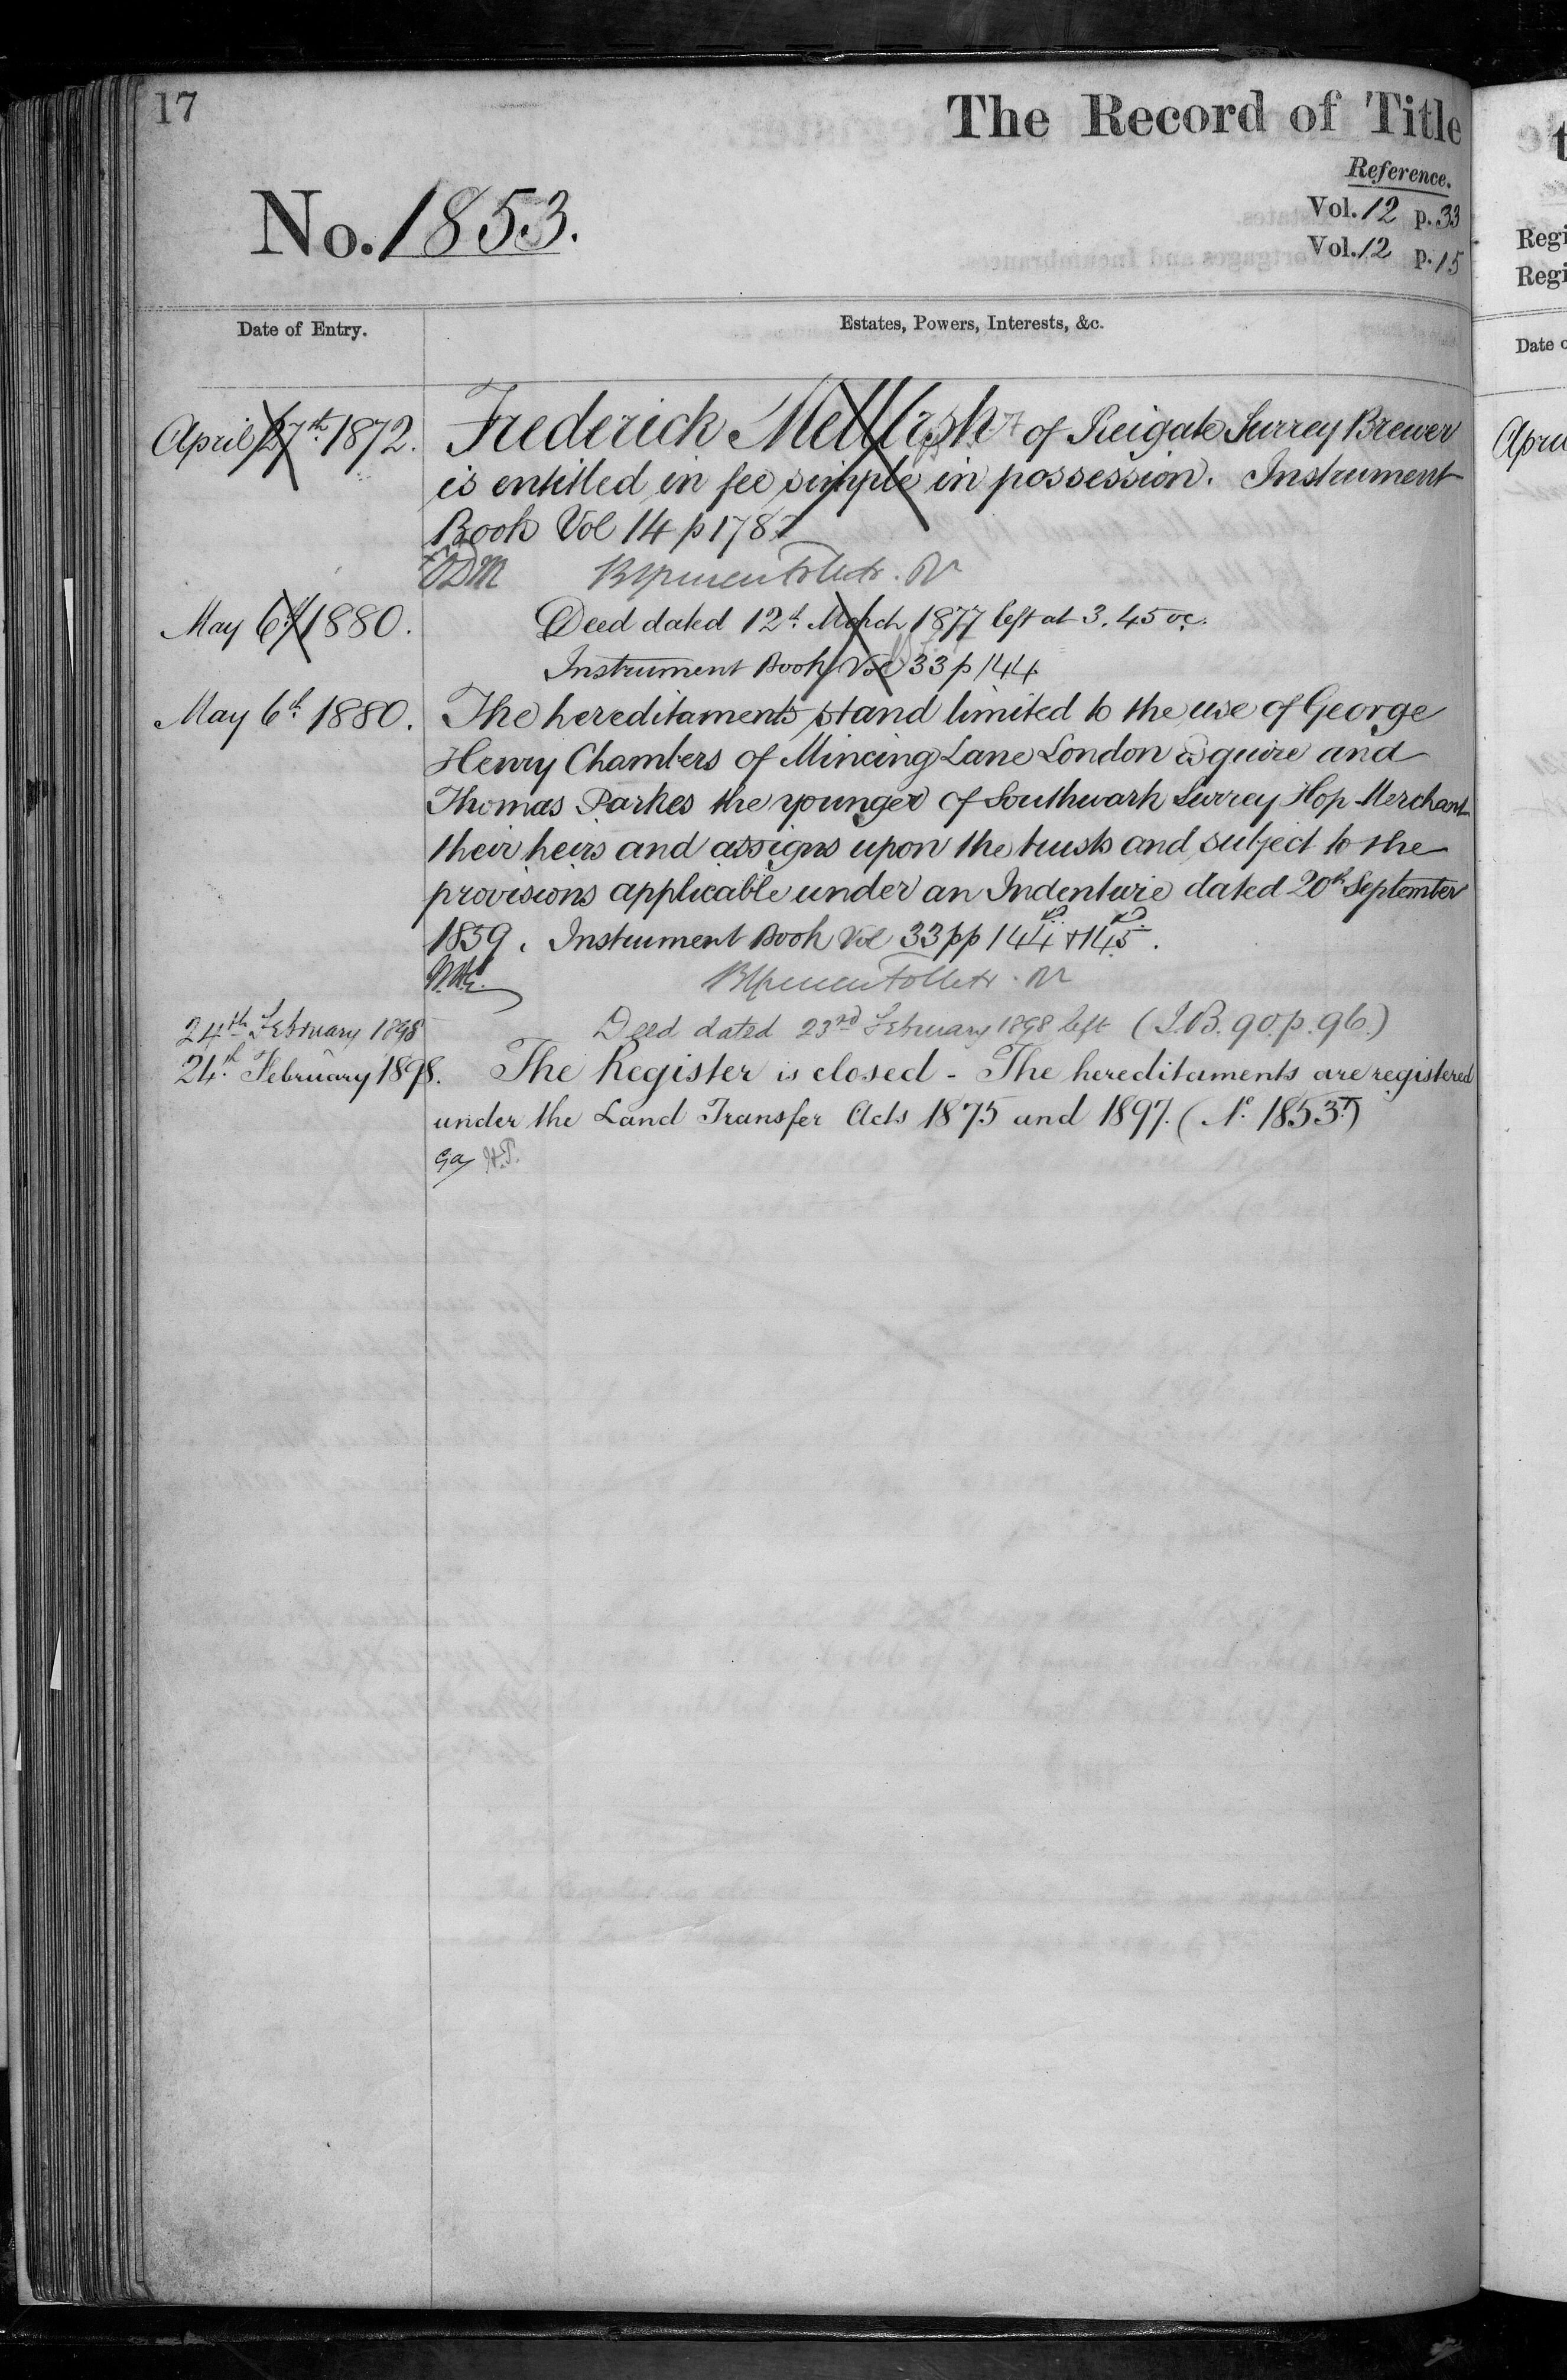 17
The Record of Title
Reference.
No. 1853.
Vol. 12 p. 33
Vol. 12 p. 15
Date of Entry.
Estates, Powers, Interests, &c.
April 27th 1872. Frederick Mellersh of Reigate Surrey Brewer
is entitled in fee simple in possession. Instrument
Book Vol 14 p 178
May 6th 1880. Deed dated 12th March 1877 left at 3.45
Instrument Book Vol 33 p 144
May 6th 1880. The hereditaments stand limited to the use of George
Henry Chambers of Mincing Lane London Esquire and
Thomas Parkes the younger of Southwark Surrey Hop Merchant
their heirs and assigns upon the trusts and subject to the
provisions applicable under an Indenture dated 20th September
1859. Instrument Book Vol 33 pp 144 & 145.
24th February 1898 Deed dated 23rd February 1898 left (I.B. 90. p. 96.)
24th February 1898. The Register is closed - The hereditaments are registered
under the Land Transfer Acts 1875 and 1897. (No. 1853T)
Regi
Regi
Date o